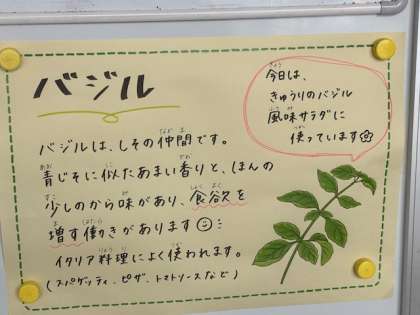 バジル
今日は、
きゅうりのバジル
風味サラダに
使っています
バジルは、しその仲間です。
青じそに似たあまい香りと、ほんの
少しのから味があり、食欲を
増す働きがあります
イタリア料理によく使われます。
(スパゲッティ、ピザ、トマトソースなど)